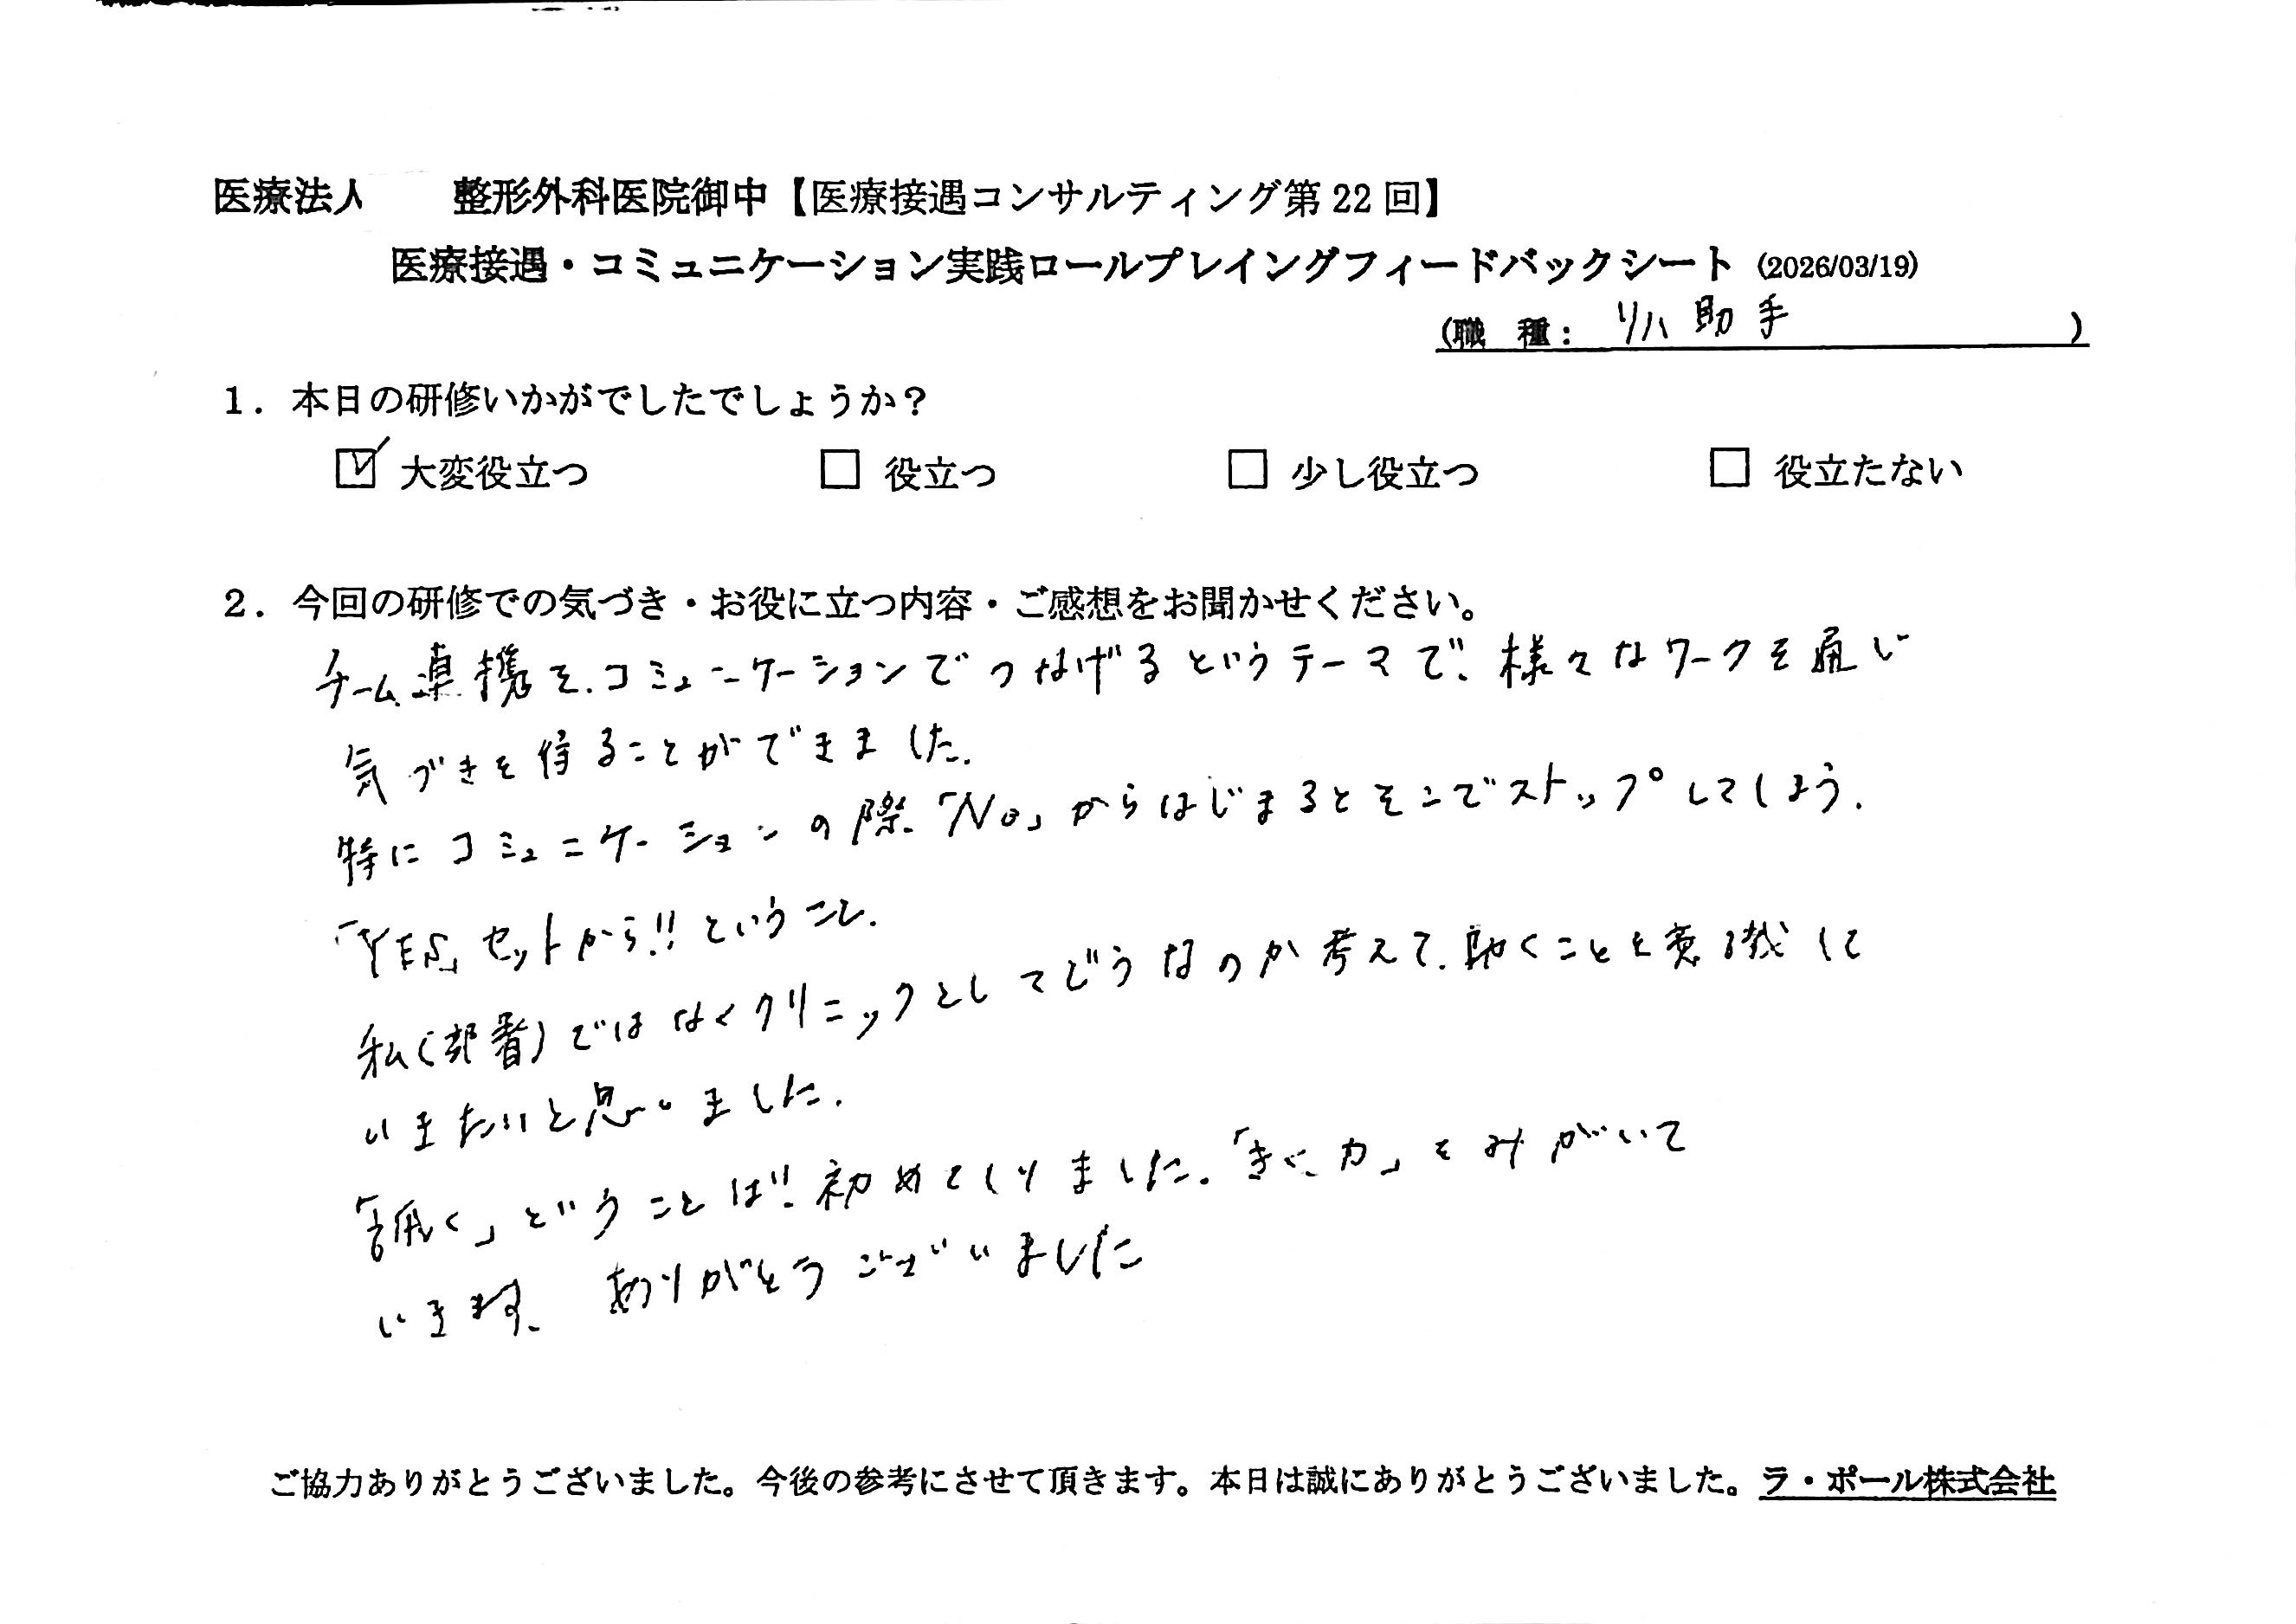 医療法人 整形外科医院御中【医療接遇コンサルティング第22回】
医療接遇・コミュニケーション実践ロールプレイングフィードバックシート (2026/03/19)
(職 種: リハ助手 )
1．本日の研修いかがでしたでしょうか？
☑ 大変役立つ □ 役立つ □ 少し役立つ □ 役立たない
2．今回の研修での気づき・お役に立つ内容・ご感想をお聞かせください。
チーム連携を、コミュニケーションでつなげるというテーマで、様々なワークを通じ
気づきを得ることができました。
特にコミュニケーションの際、「No」からはじまるとそこでストップしてしまう。
「YES」セットから!!ということ。
私(部署)ではなくクリニックとしてどうなのか考えて、動くことを意識して
いきたいと思いました。
」ということば!!初めてしりました。「きく力」をみがいて
いきます。 ありがとうございました
ご協力ありがとうございました。今後の参考にさせて頂きます。本日は誠にありがとうございました。ラ・ポール株式会社